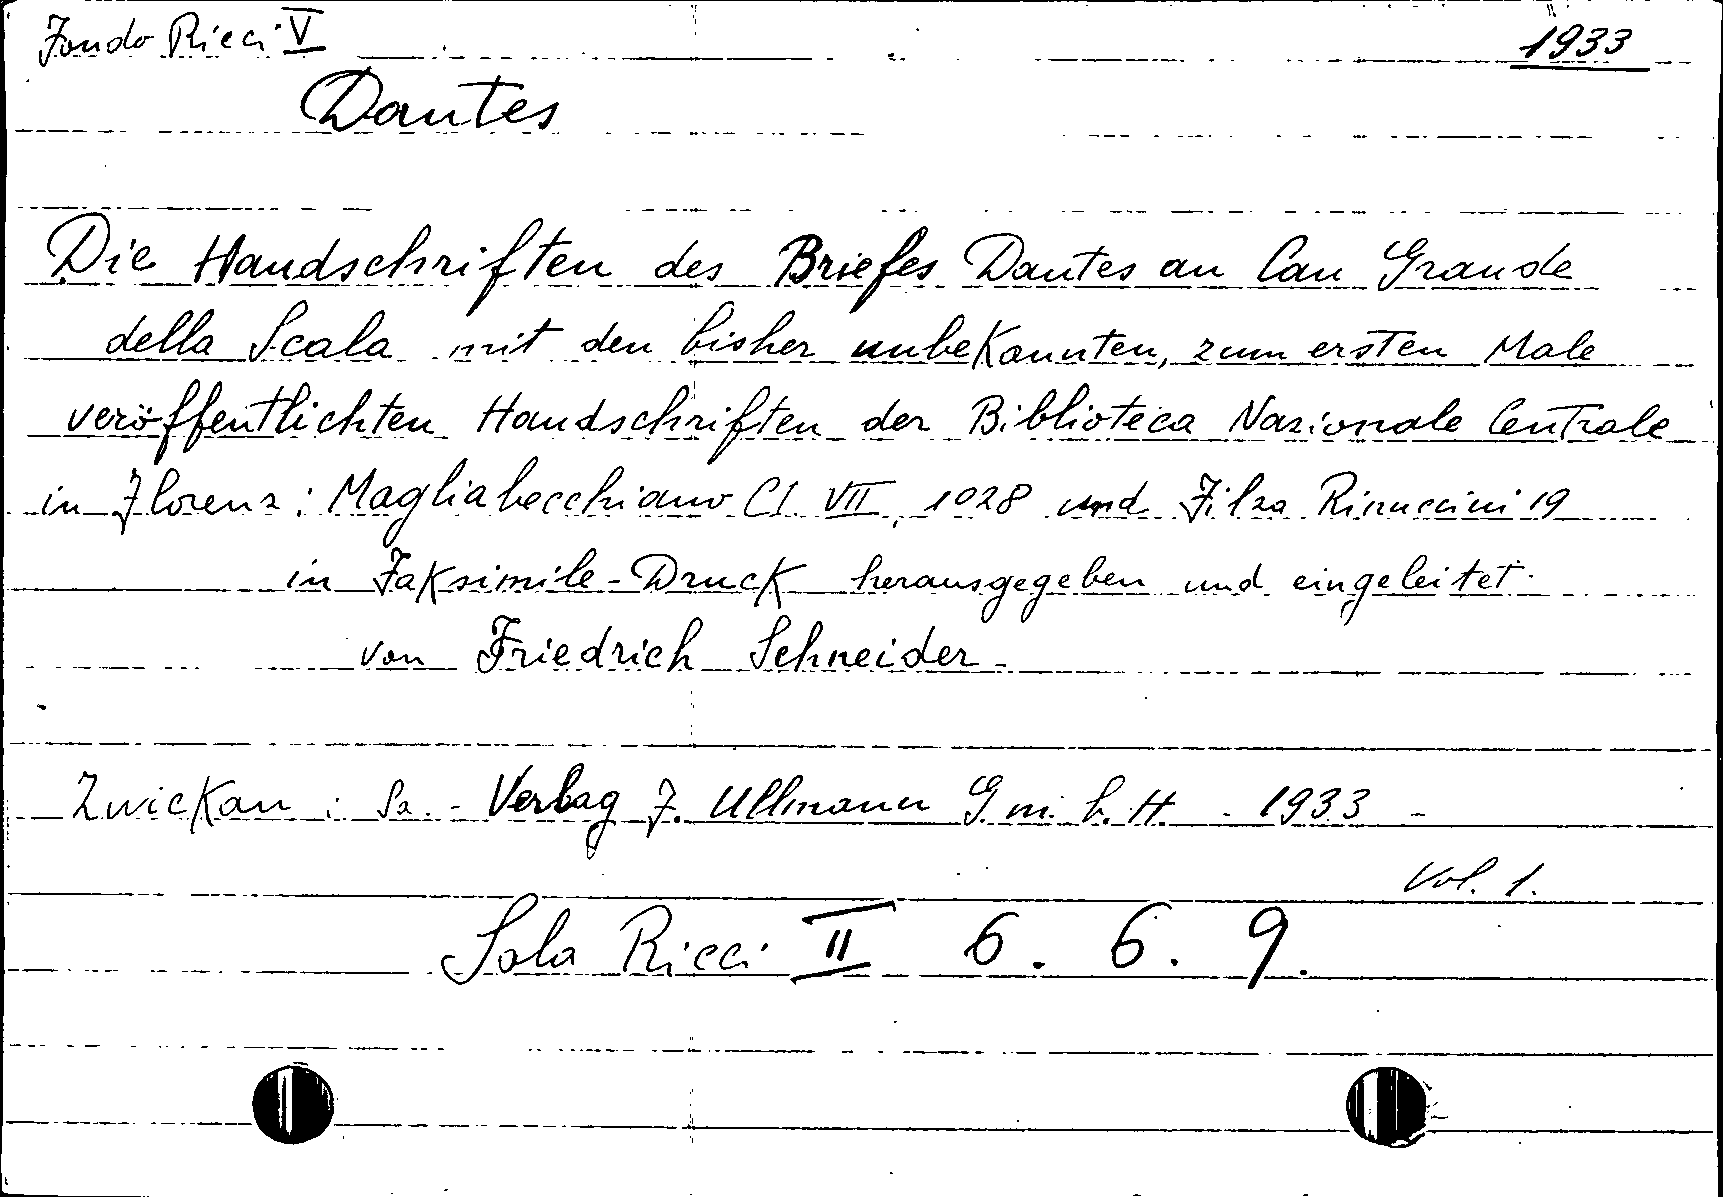 Fondo Ricci V
1933
Dantes
Die Handschriften des Briefes Dantes an Can Grande
della Scala mit den bisher unbekannten, zum ersten Male
veröffentlichten Handschriften der Biblioteca Nazionale Centrale
in Florenz: Magliabecchiano Cl. VII, 1028 und Filza Rinuccini 19
in Faksimile-Druck herausgegeben und eingeleitet
von Friedrich Schneider -
Zwickau : Sa. - Verlag F. Ullmann G. m. b. H. - 1933 -
Vol. 1.
Sala Ricci II 6. 6. 9.